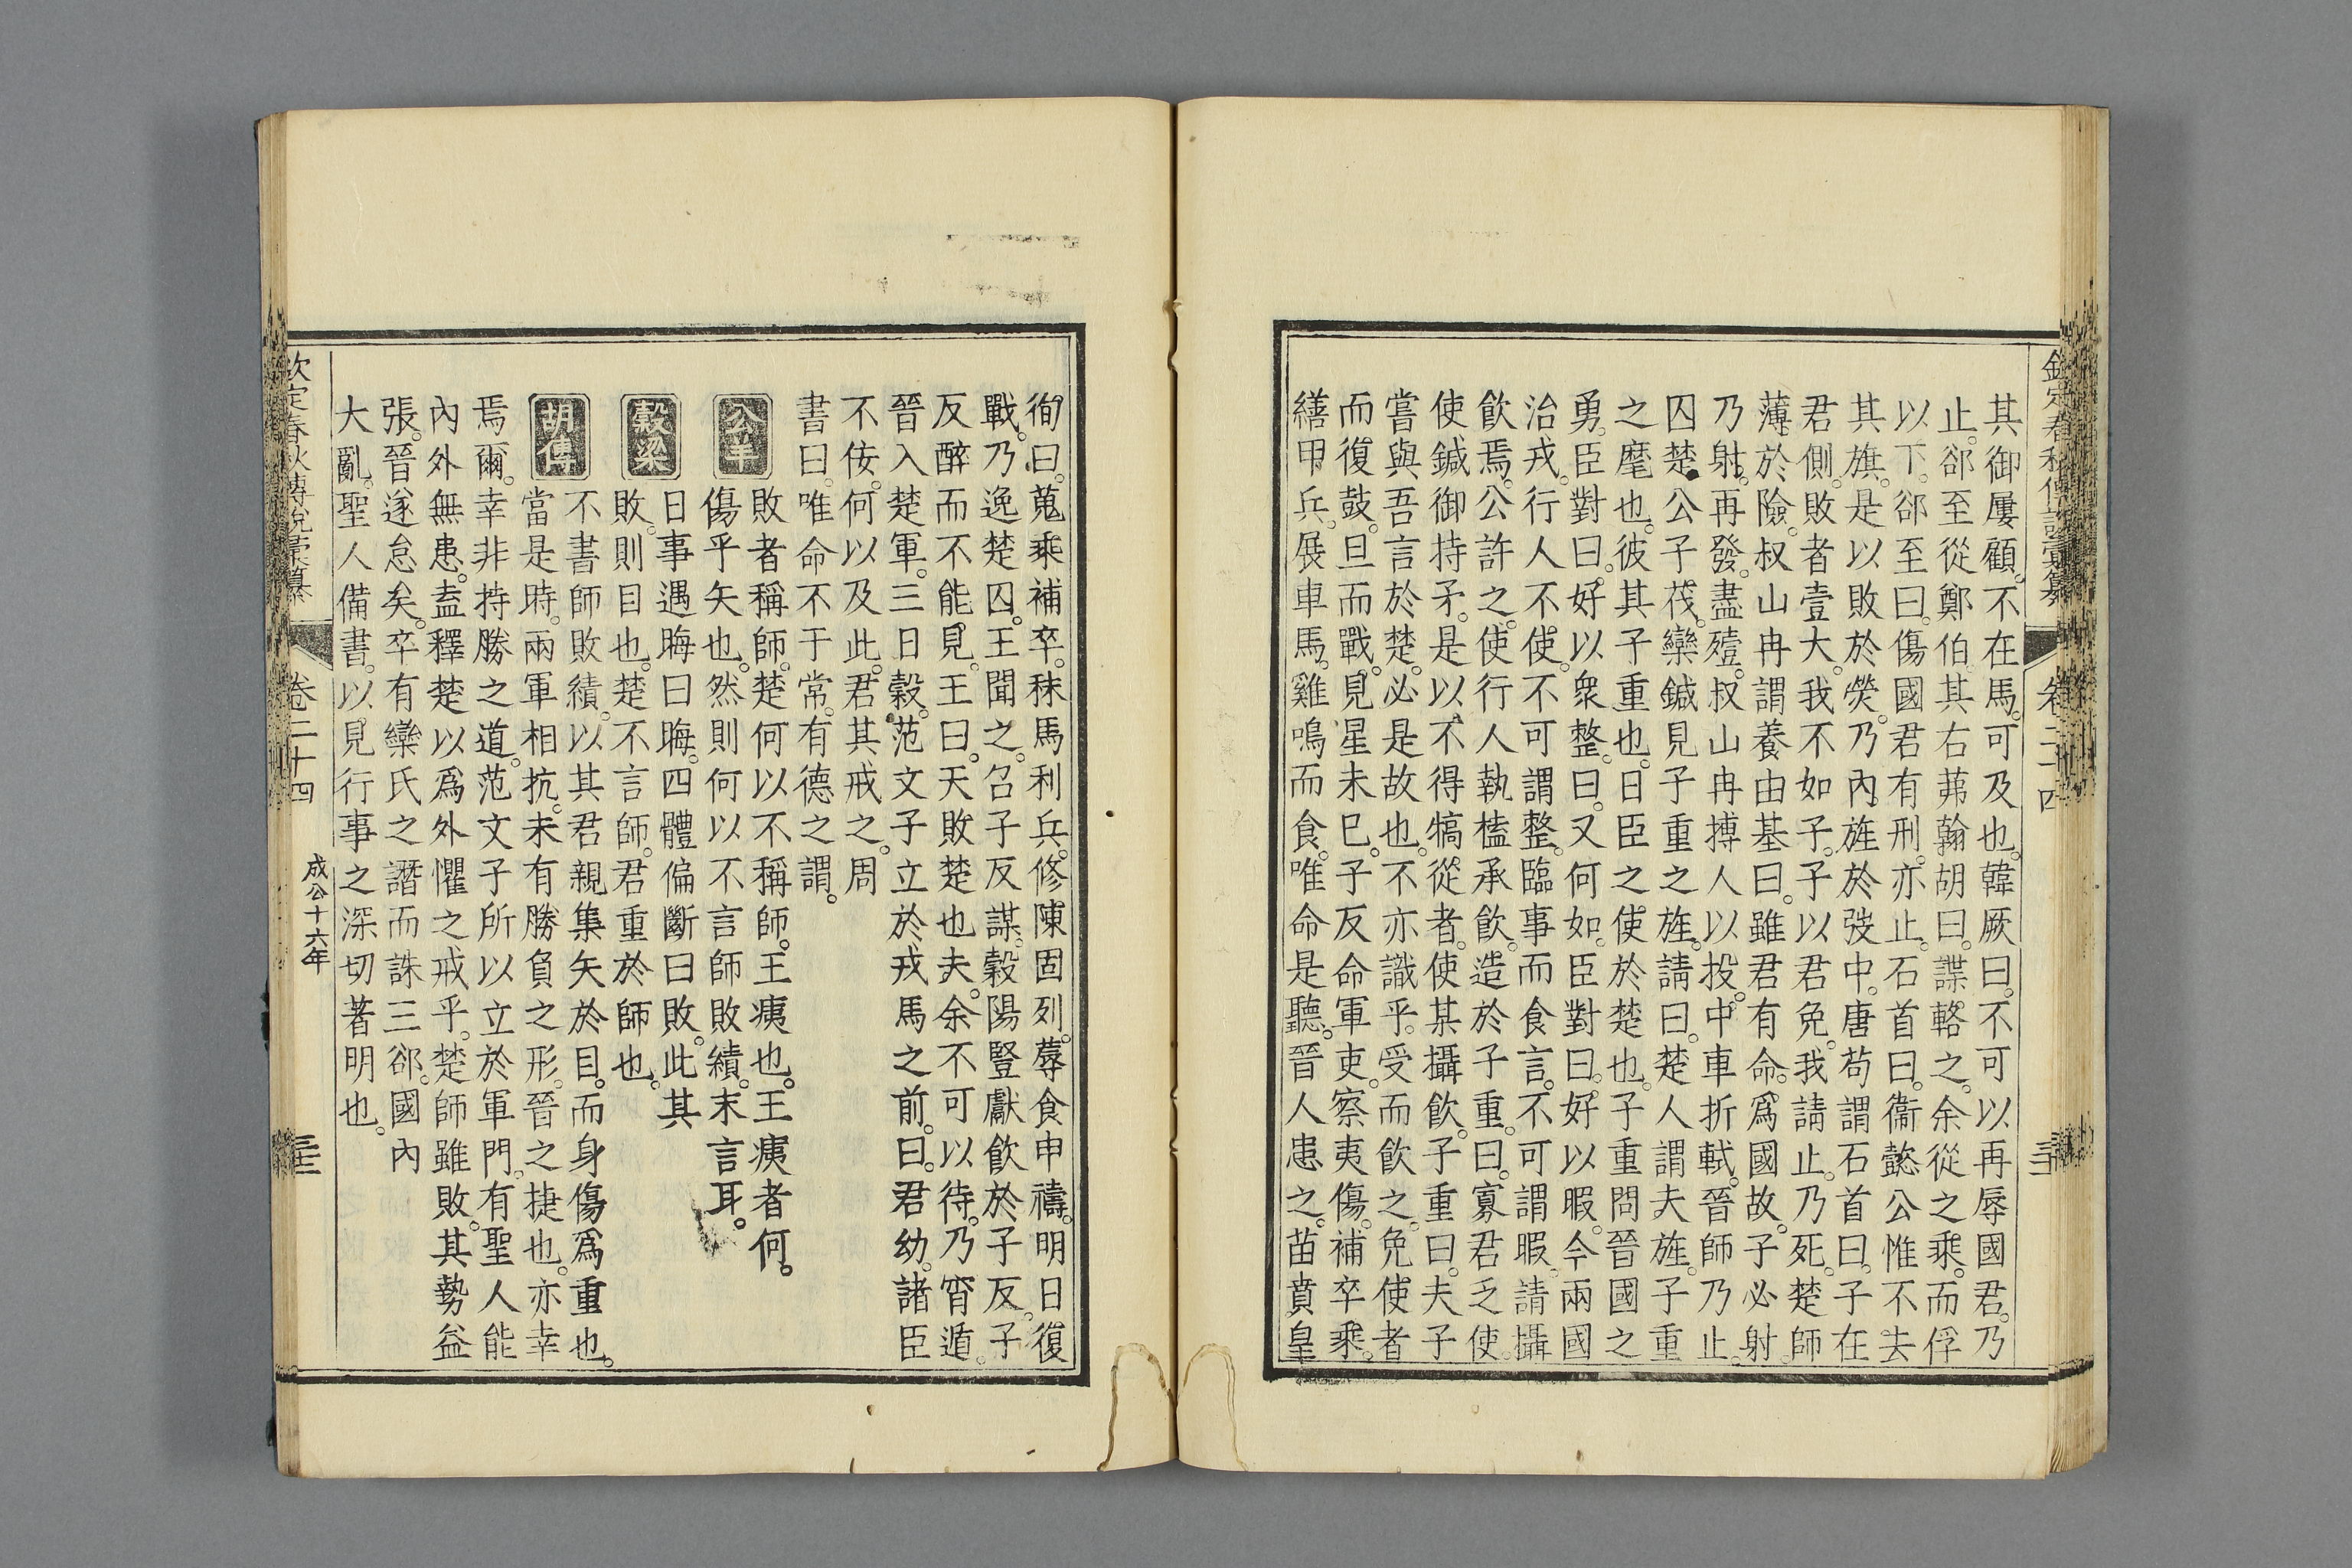 欽定春秋傳說彙纂 卷二十四
其御屢顧。不在馬。可及也。韓厥曰。不可以再辱國君。乃
止。郤至從鄭伯。其右茀翰胡曰。諜輅之。余從之乘。而俘
以下。郤至曰。傷國君有刑。亦止。石首曰。衞懿公惟不去
其旗。是以敗於熒。乃內旌於弢中。唐苟謂石首曰。子在
君側。敗者壹大。我不如子。子以君免。我請止。乃死。楚師
薄於險。叔山冉謂養由基曰。雖君有命。爲國故。子必射。
乃射。再發。盡殪。叔山冉搏人以投。中車折軾。晉師乃止。
囚楚公子茷。欒鍼見子重之旌。請曰。楚人謂夫旌。子重
之麾也。彼其子重也。日臣之使於楚也。子重問晉國之
勇。臣對曰。好以衆整。曰。又何如。臣對曰。好以暇。今兩國
治戎。行人不使。不可謂整。臨事而食言。不可謂暇。請攝
飮焉。公許之。使行人執榼承飮。造於子重。曰。寡君乏使。
使鍼御持矛。是以不得犒從者。使某攝飮。子重曰。夫子
嘗與吾言於楚。必是故也。不亦識乎。受而飮之。免使者
而復鼓。旦而戰。見星未已。子反命軍吏。察夷傷。補卒乘。
繕甲兵。展車馬。雞鳴而食。唯命是聽。晉人患之。苗賁皇
徇曰。蒐乘補卒。秣馬利兵。修陳固列。蓐食申禱。明日復
戰。乃逸楚囚。王聞之。召子反謀。穀陽豎獻飮於子反。子
反醉而不能見。王曰。天敗楚也夫。余不可以待。乃宵遁。
晉入楚軍。三日穀。范文子立於戎馬之前。曰。君幼。諸臣
不佞。何以及此。君其戒之。周
書曰。唯命不于常。有德之謂。
公羊 敗者稱師。楚何以不稱師。王痍也。王痍者何。
傷乎矢也。然則何以不言師敗績。末言耳。
穀梁 日事遇晦曰晦。四體偏斷曰敗。此其
敗。則目也。楚不言師。君重於師也。
胡傳 不書師敗績。以其君親集矢於目。而身傷爲重也。
當是時。兩軍相抗。未有勝負之形。晉之捷也。亦幸
焉爾。幸非持勝之道。范文子所以立於軍門。有聖人能
內外無患。盍釋楚以爲外懼之戒乎。楚師雖敗。其勢益
張。晉遂怠矣。卒有欒氏之譖而誅三郤。國內
大亂。聖人備書。以見行事之深切著明也。
欽定春秋傳說彙纂 卷二十四 成公十六年